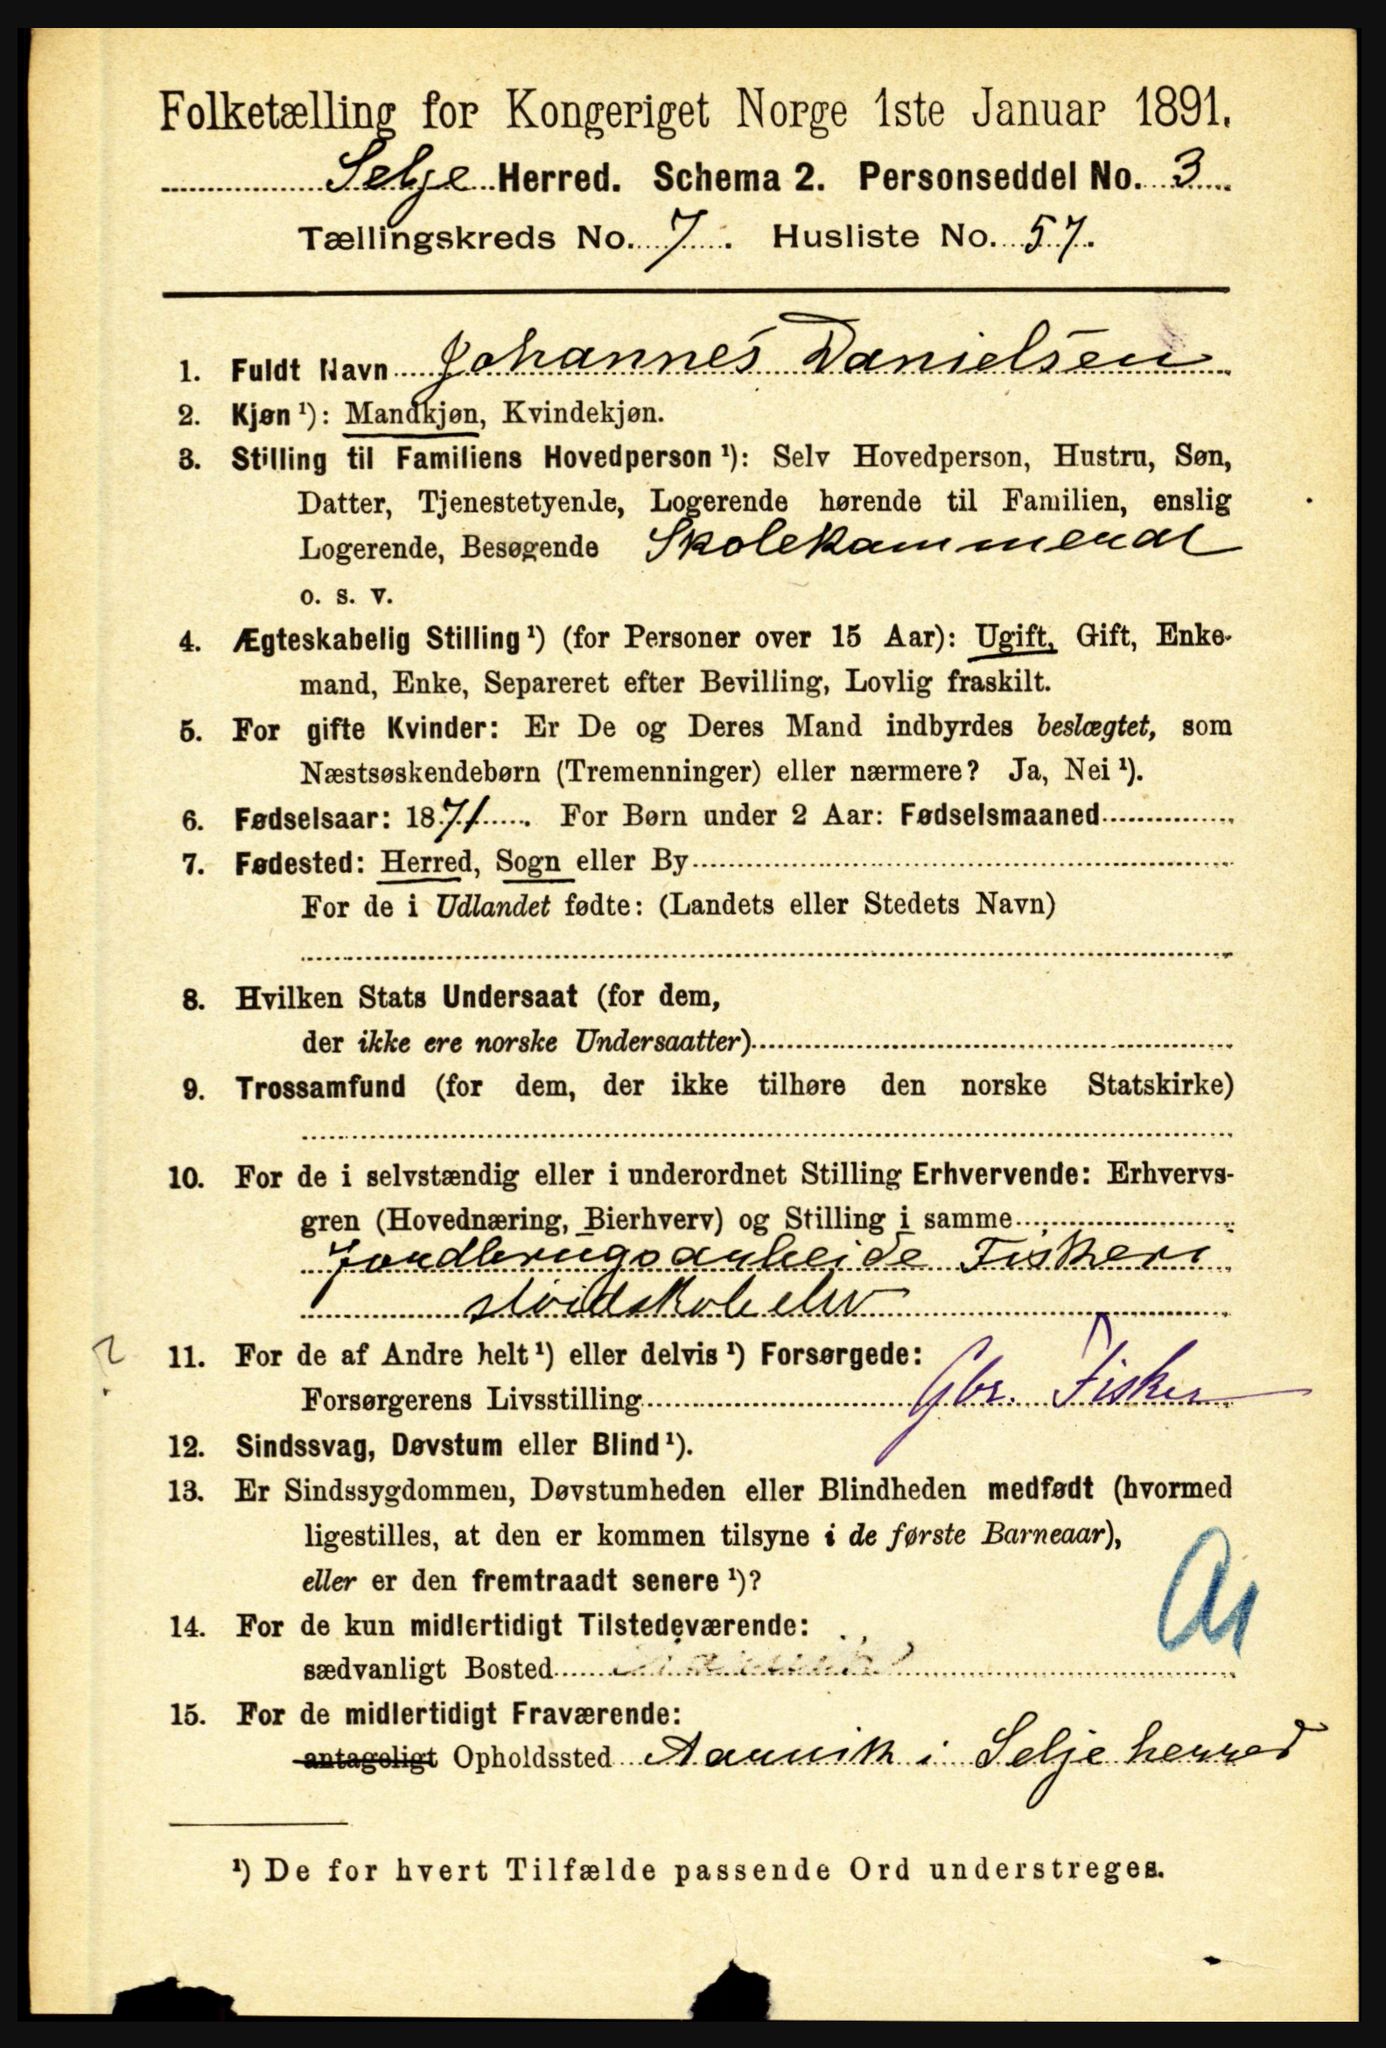 Folketælling for Kongeriget Norge 1ste Januar 1891.
Selje Herred. Schema 2. Personseddel No. 3
Tællingskreds No. 7. Husliste No. 57.
1. Fuldt Navn Johannes Danielsen
2. Kjøn ¹): Mandkjøn, Kvindekjøn.
3. Stilling til Familiens Hovedperson ¹): Selv Hovedperson, Hustru, Søn,
Datter, Tjenestetyende, Logerende hørende til Familien, enslig
Logerende, Besøgende Skolekammerat
o. s. v.
4. Ægteskabelig Stilling ¹) (for Personer over 15 Aar): Ugift, Gift, Enke-
mand, Enke, Separeret efter Bevilling, Lovlig fraskilt.
5. For gifte Kvinder: Er De og Deres Mand indbyrdes beslægtet, som
Næstsøskendebørn (Tremenninger) eller nærmere? Ja, Nei ¹).
6. Fødselsaar: 1871. For Børn under 2 Aar: Fødselsmaaned
7. Fødested: Herred, Sogn eller By
For de i Udlandet fødte: (Landets eller Stedets Navn)
8. Hvilken Stats Undersaat (for dem,
der ikke ere norske Undersaatter)
9. Trossamfund (for dem, der ikke tilhøre den norske Statskirke)
10. For de i selvstændig eller i underordnet Stilling Erhvervende: Erhvervs-
gren (Hovednæring, Bierhverv) og Stilling i samme
Jordbrugsarbeide Fiskeri
sløidskoleelev
11. For de af Andre helt ¹) eller delvis ¹) Forsørgede:
Forsørgerens Livsstilling Gbr. Fisker
12. Sindssvag, Døvstum eller Blind ¹).
13. Er Sindssygdommen, Døvstumheden eller Blindheden medfødt (hvormed
ligestilles, at den er kommen tilsyne i de første Barneaar),
eller er den fremtraadt senere ¹)?
14. For de kun midlertidigt Tilstedeværende:
sædvanligt Bosted
15. For de midlertidigt Fraværende:
antageligt Opholdssted Aarvik i Selje herred
¹) De for hvert Tilfælde passende Ord understreges.